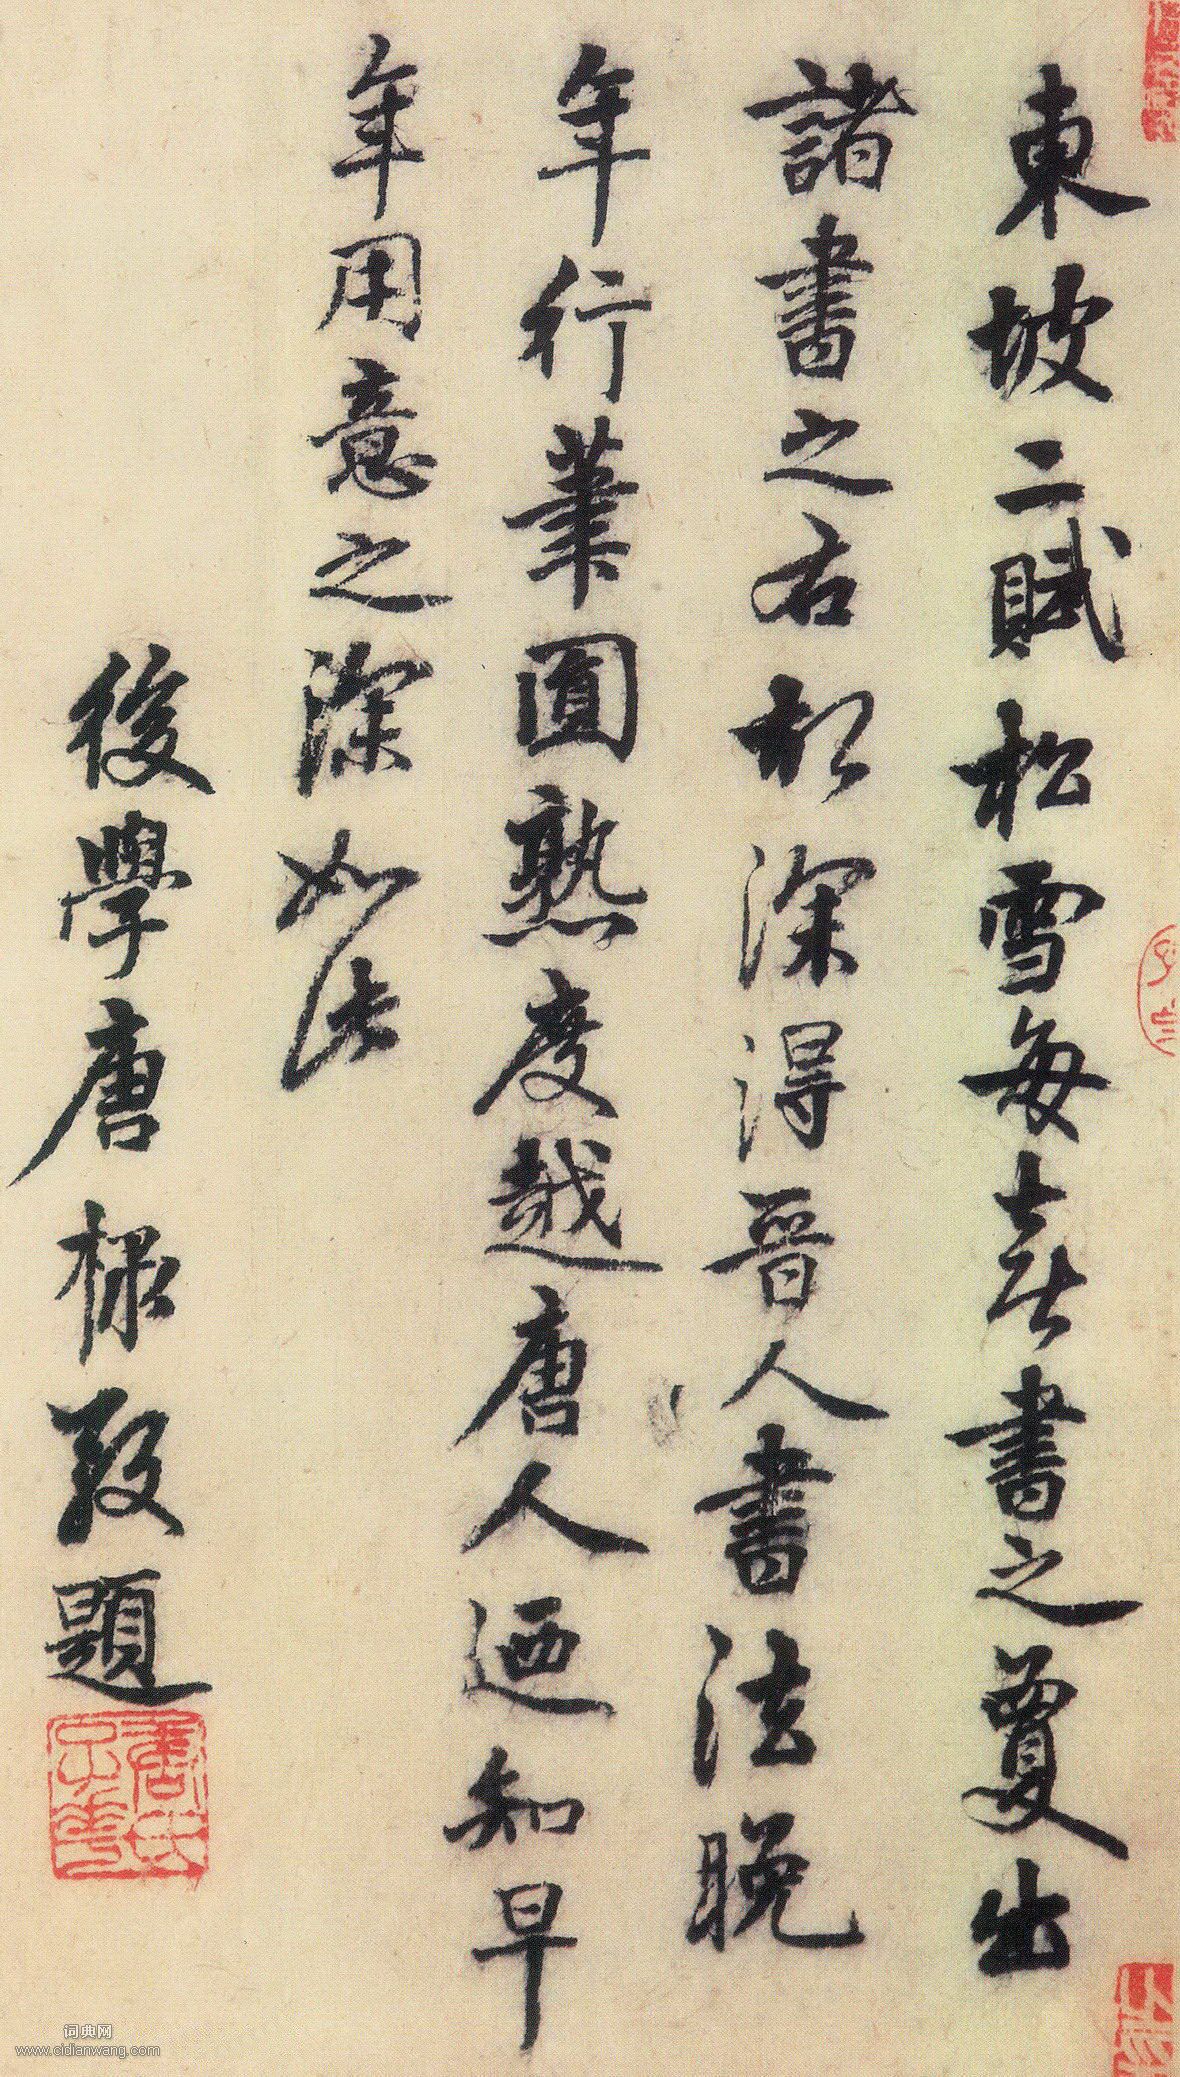 東坡二賦松雪每喜書之夐出
諸書之右初深得晉人書法晚
年行筆圓熟度越唐人迺知早
年用意之深如此
後學唐棣敬題
唐氏子華
词典网
www.cidianwang.com